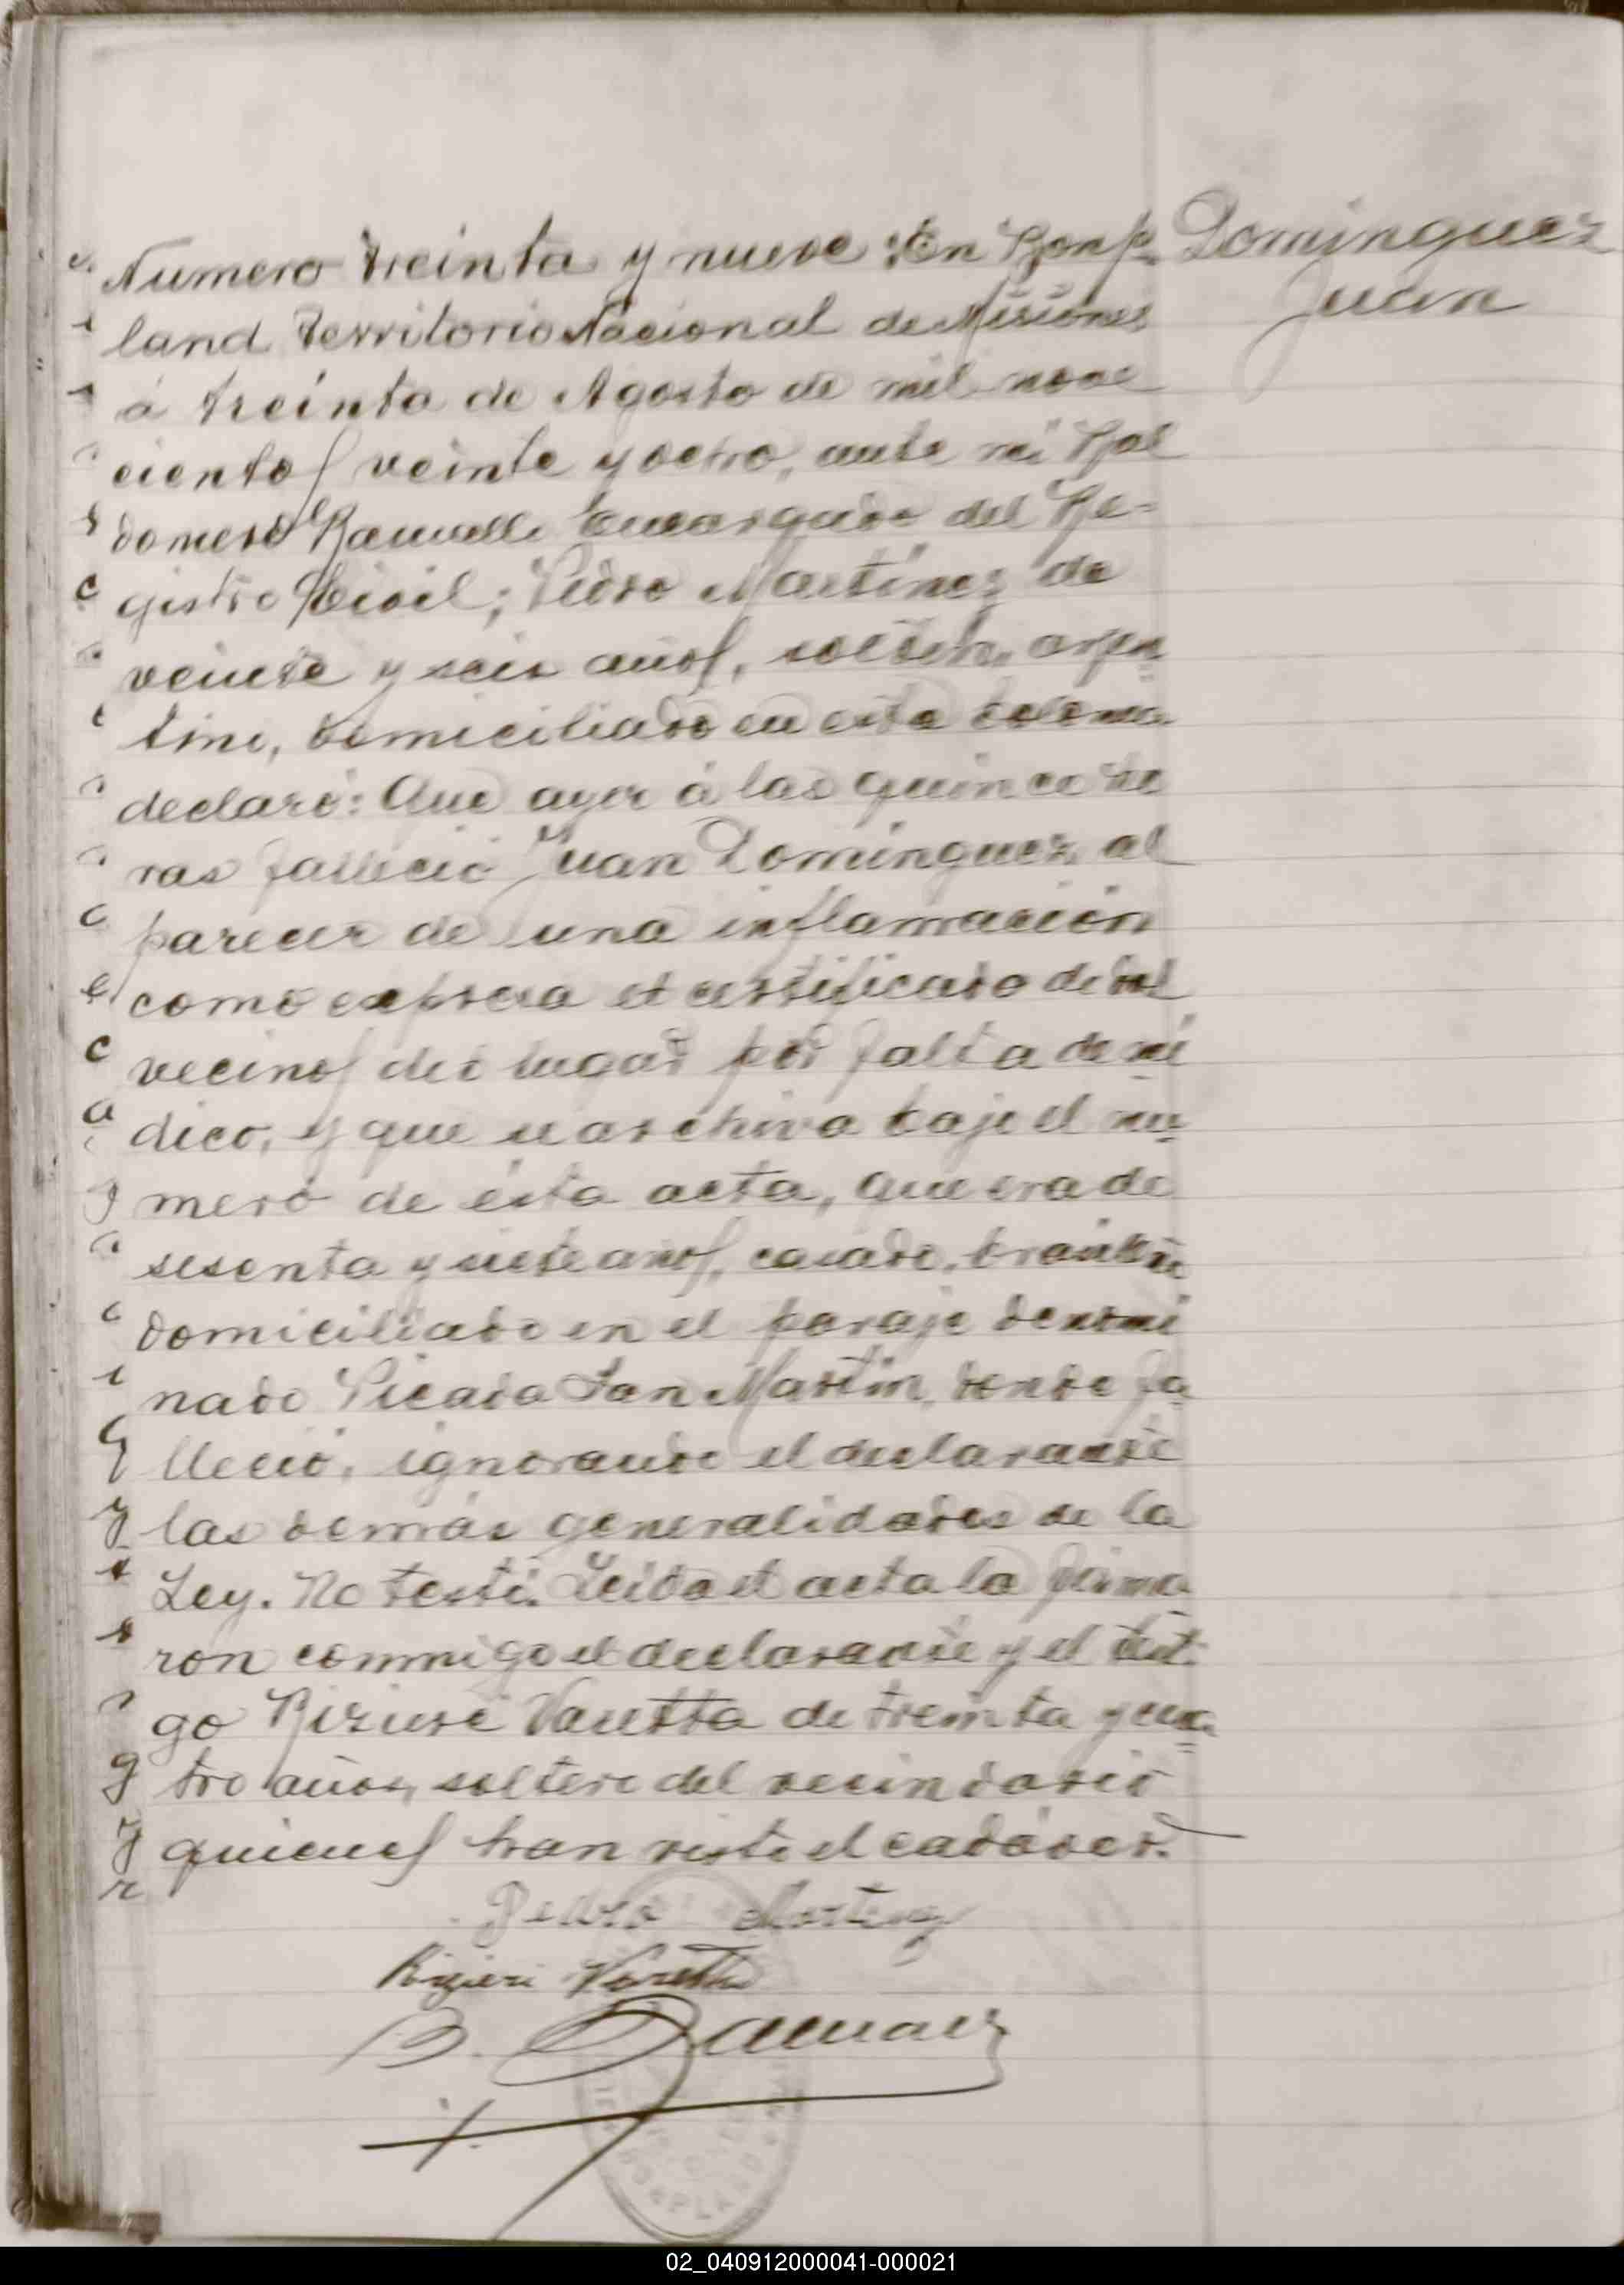 Numero treinta y nueve: En Bonp
Dominguez
Juan
land Territorio Nacional de Misiones
á treinta de Agosto de mil nove
cientos veinte y ocho, ante mi Bal
domero Encargado del Re-
gistro Civil; Pedro Martinez de
veinte y seis años, soltero, argen
tino, domiciliado en esta colonia
declaró: Que ayer á las quince ho
ras falleció Juan Dominguez, al
parecer de una inflamación
como expresa el certificado de dos
vecinos del lugar por falta de mé
dico, y que se archiva bajo el nu
mero de ésta acta, que era de
sesenta y siete años, casado, brasileño
domiciliado en el paraje denomi
nado Picada San Martin, donde fa
lleció, ignorando el declarante
las demás generalidades de la
Ley. No testó. Leida el acta la firma
ron conmigo el declarante y el testi
go Rizieri Vanetta de treinta y cua
tro años, soltero del vecindario
quienes han visto el cadáver.
Pedro Martinez
Rizieri Vanetta
B.
BONPLAND
02_040912000041-000021